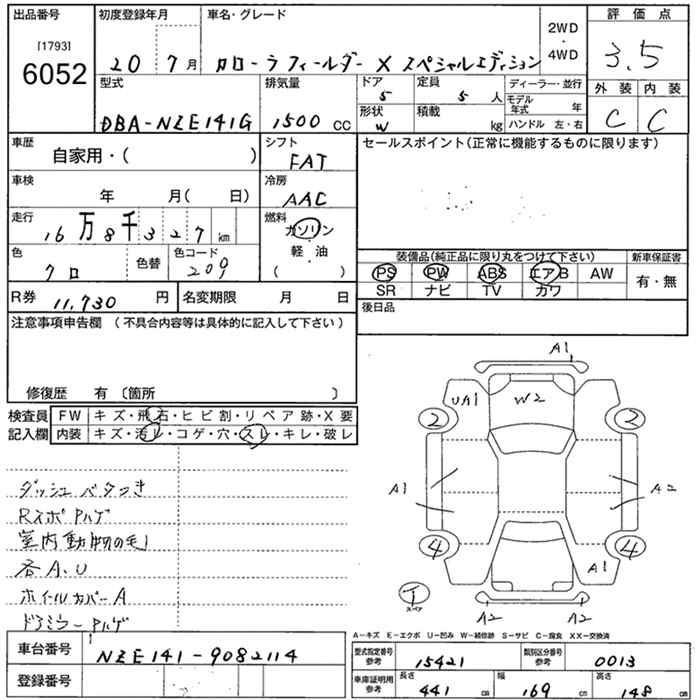 出品番号 初度登録年月 車名・グレード 評価点
[1793] 6052 20 7月 カローラフィールダー X スペシャルエディション 2WD・4WD 3.5
型式 排気量 ドア 定員 ディーラー・並行 外装 内装
DBA-NZE141G 1500 CC 5 5人 モデル年式 年 C C
形状 積載
W kg ハンドル 左・右
車歴 シフト セールスポイント(正常に機能するものに限ります)
自家用・( ) FAT
車検 冷房
年 月( 日) AAC
走行 燃料
16万8千327km ガソリン・軽・油 ( )
色 色替 色コード 装備品(純正品に限り丸をつけて下さい) 新車保証書
クロ 209 PS PW ABS エアB AW 有・無
SR ナビ TV カワ
R券 11,730円 名変期限 月 日 後日品
注意事項申告欄 (不具合内容等は具体的に記入して下さい)
修復歴 有 〔箇所 〕
検査員 FW キズ・飛石・ヒビ割・リペア跡・X要
記入欄 内装 キズ・汚レ・コゲ・穴・スレ・キレ・破レ
A1
UA1 W2
2 2
A1 A2
4 4
A1
T スペア
A2 A2
ダッシュ ベタつき
Rスポ Pハゲ
室内動物の毛
各A.U
ホイールカバーA
ドアミラーPハゲ
A-キズ E-エクボ U-凹み W-補修跡 S-サビ C-腐食 XX-交換済
車台番号 NZE141-9082114 型式指定番号 参考 15421 類別区分番号 参考 0013
登録番号 車庫証明用 参考 長さ 441 cm 幅 169 cm 高さ 148 cm